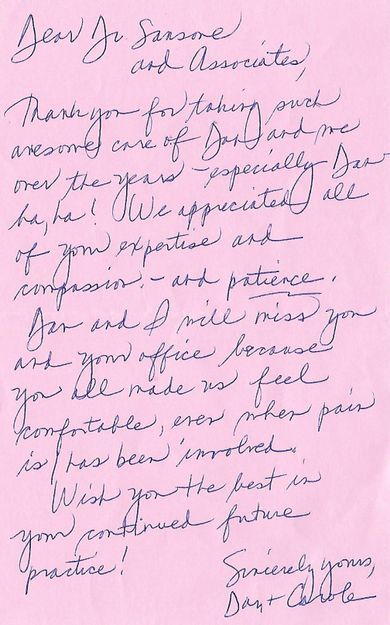 Dear Dr Sansone
and Associates,
Thank you for taking such
awesome care of Dan and me
over the years - especially Dan -
ha, ha! We appreciated all
of your expertise and
compassion. - and patience.
Dan and I will miss you
and your office because
you all made us feel
comfortable, even when pain
is/has been involved.
Wish you the best in
your continued future
practice!
Sincerely yours,
Dan + Carole